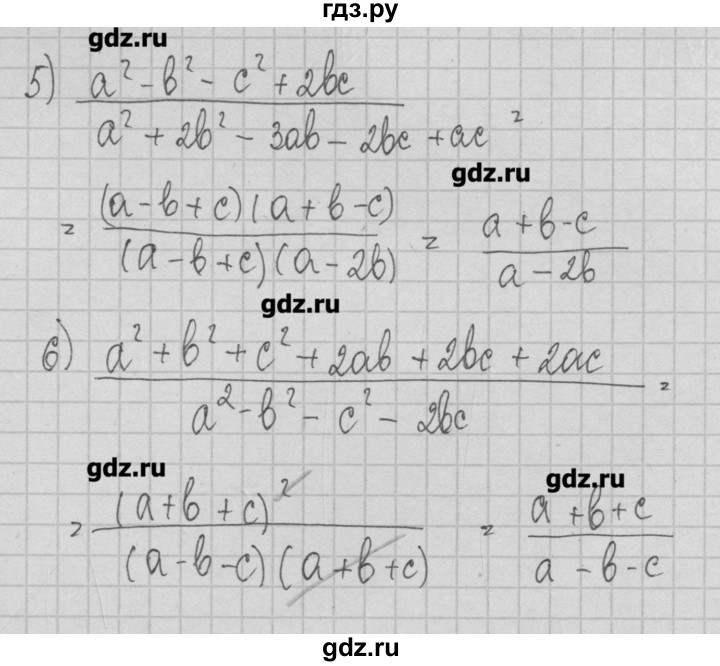 гдз.ру
gdz.ru
5) (a² - b² - c² + 2bc) / (a² + 2b² - 3ab - 2bc + ac) =
gdz.ru
= ((a - b + c)(a + b - c)) / ((a - b + c)(a - 2b)) = (a + b - c) / (a - 2b)
gdz.ru
6) (a² + b² + c² + 2ab + 2bc + 2ac) / (a² - b² - c² - 2bc) =
gdz.ru
gdz.ru
= (a + b + c)² / ((a - b - c)(a + b + c)) = (a + b + c) / (a - b - c)
gdz.ru